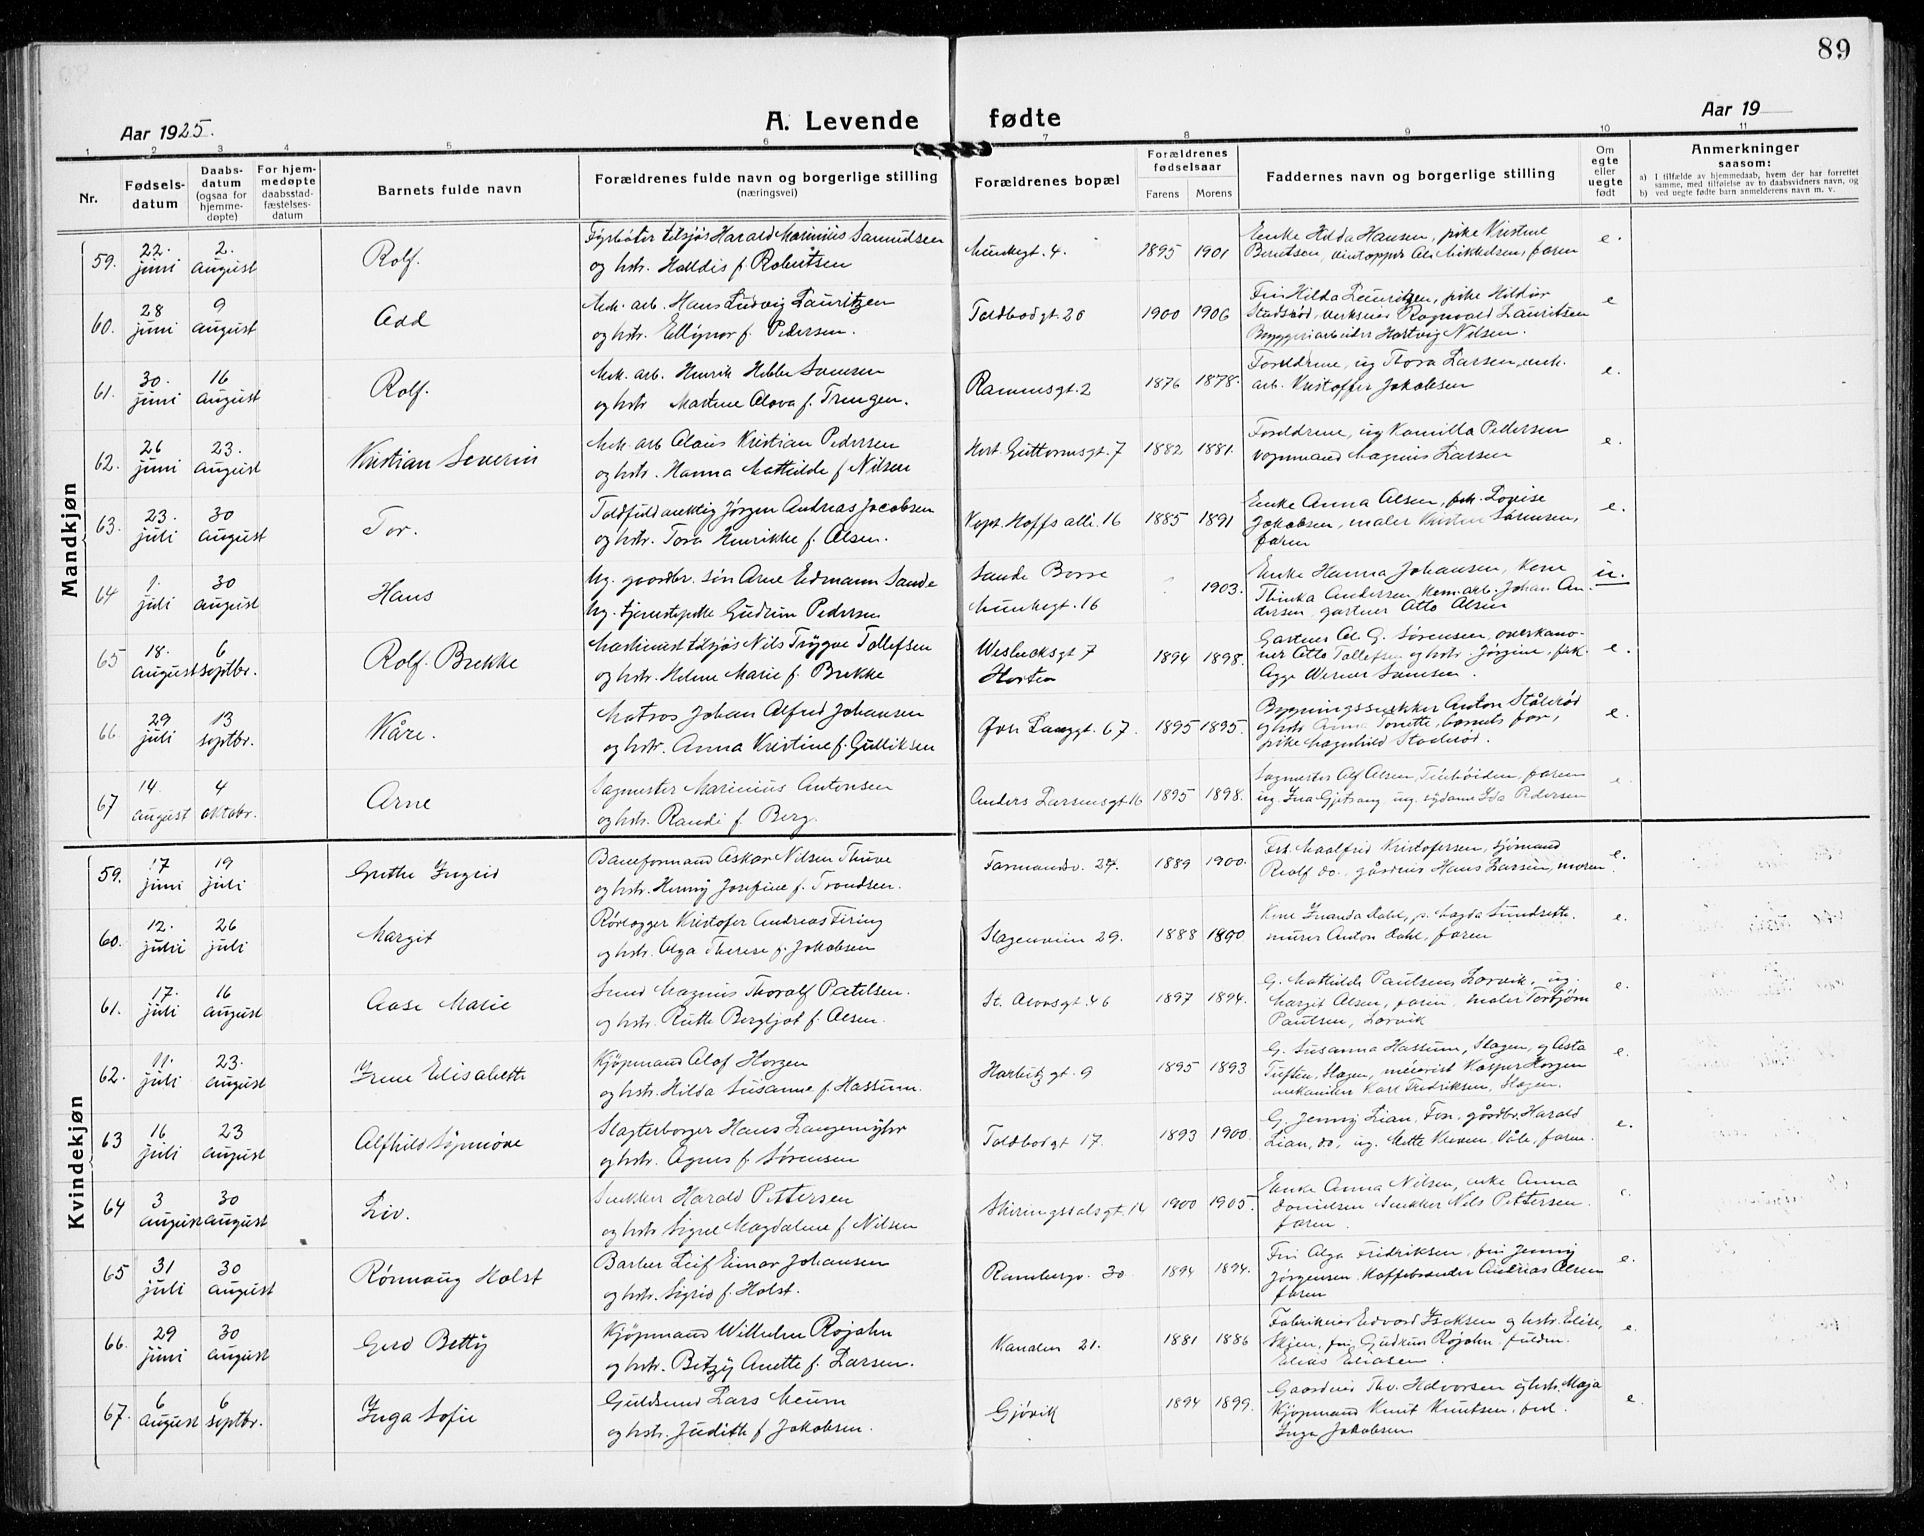 89
Aar 1925.
A. Levende fødte
Aar 19
1 2 3 4 5 6 7 8 9 10 11
Nr.
Fødsels-
datum
Daabs-
datum
(ogsaa for
hjemme-
døpte)
For hjem-
medøpte
daabsstad-
fæstelses-
datum
Barnets fulde navn
Forældrenes fulde navn og borgerlige stilling
(næringsvei)
Forældrenes bopæl
Forældrenes
fødselsaar
Farens Morens
Faddernes navn og borgerlige stilling
Om
egte
eller
uegte
født
Anmerkninger
saasom:
a) I tilfælde av hjemmedaab, hvem der har forrettet
samme, med tilføielse av to daabsvidners navn, og
b) ved uegte fødte barn anmelderens navn m. v.
Mandkjøn
59. 22. juni 2. august Rolf.
Fyrbøter tilsjøs Harald Marinius Samuelsen
og hstr. Halldis f. Robertsen
Munkegt. 4. 1895 1901
Enke Hilda Hansen, pike Kristine
Berntsen, vintapper Ole Mikkelsen, faren
e.
60. 28 juni 9 august Odd
Mek. arb. Hans Ludvig Lauritzen
og hstr. Ellynor f. Pedersen.
Toldbodgt 26 1900 1906
Fru Hilda Lauritzen, pike Hildur
Stadskød, verkseier Ragnvald Lauritsen
Bryggeriarbeider Hartvig Nilsen.
e
61. 30. juni 16 august Rolf.
Mek. arb. Henrik Hilbo Samsen
og hstr Martine Olava f. Trengen.
Rammsgt. 2 1876 1878.
Foreldrene, ug Thora Larsen, mek.
arb. Kristoffer Jakobsen
e.
62. 26 juni 23. august Kristian Severin
Mek. arb Olaus Kristian Pedersen
og hstr. Hanna Mathilde f Nilsen
Hert. Guttormsgt. 7 1882 1881.
Foreldrene, ug Kamilla Pedersen
vognmand Magnus Larsen
e.
63. 23. juli 30 august Tor.
Toldfuldmektig Jørgen Andreas Jacobsen
og hstr. Tora Henrikke f. Olsen.
Kapt. Hoffs alle. 16 1885 1891
Enke Anna Olsen, frk. Lovise
Jakobsen, maler Kristen Sørensen,
faren
e.
64 1. juli 30 august Hans
Ug. gaardbr. søn Arne Edmann Sande
Ug. tjenestepike Gudrun Pedersen
Sande Borre
Munkegt. 16 1903.
Enke Hanna Johansen, Kone
Thinka Andersen kem. arb. Johan An-
dersen, gartner Otto Olsen
u.
65 18. august 6 septbr. Rolf Brekke
Maskinist tilsjøs Nils Trygve Tollefsen
og hstr. Helene Marie f. Brekke
7
Horten 1894 1898.
Gartner Ol. G. Sørensen, overkano-
ner Otto Tollefsen og hstr. Jørgine, frk.
Agge Werner Samsen.
e.
66 29 juli 13 septbr. Kåre.
Matros Johan Alfred Johansen
og hstr. Anna Kristine f. Gulliksen
Øvre Langgt. 67. 1895 1895.
Bygningssnekker Anton Stålerød
og hstr. Anna Tonette, barnets far,
pike Magnhild Stalerød.
e.
67 14. august 4 oktobr. Arne
Sagmester Marinius Antonsen
og hstr. Randi f. Berg.
Anders Larsensgt. 16 1895 1898.
Sagmester Alf Olsen, Tinhøiden, faren
ug. Ina Gjetrang, ug. sydame Ida Pedersen
e.
Kvindekjøn
59. 17 juni 19 juli Grethe Ingrid
Baneformand Oskar Nilsen Thuve
og hstr. Henny Josefine f. Trondsen.
Farmandsv. 24. 1889 1900.
Frk. Maalfrid Kristofersen, sjømand
Reolf do., gårdeier Hans Larsen, moren
e.
60. 12. juli 26 juli Margit
Rørlegger Kristofer Andreas Firing
og hstr. Olga Therese f. Jakobsen
Slagenveien 29. 1888 1890
Kone Inanda Dahl, p. Magda Sundseth.
murer Anton Dahl, faren
e.
61. 17. juli 16 august Aase Marie
Smed Magnus Thoralf Paulsen.
og hstr. Ruth Bergljot f. Olsen.
St. Olavsgt. 46 1897 1894.
G. Mathilde Paulsen, Larvik, ug.
Margit Olsen, faren, maler Torbjørn
Paulsen, Larvik
e.
62. 11. juli 23. august Irene Elisabeth
Kjøpmand Olaf Horgen
og hstr. Hilda Susanne f. Hassum.
Harbitzgt 9 1895 1893
G. Susanna Hassum, Slagen, og Asta
Tuften, Slagen, meierist Kasper Horgen
mekaniker Karl Fredriksen, Slagen.
e.
63 16 juli 23 august Alfhild Synnøve
Slagterborger Hans Langemyhr
og hstr. Agnes f. Sørensen
Toldbodgt 17. 1893 1900.
G. Jenny Lian, Fon, gårdbr. Harald
Lian, do, ug. Mette Kleven, Våle, faren.
e.
64 3 august 30 august Liv.
Snekker Harald Pettersen
og hstr. Signe Magdalene f. Nilsen
Skiringssalsgt. 14 1900 1905.
Enke Anna Nilsen, enke Anna
Danielsen Snekker Nils Pettersen.
faren.
e.
65 31 juli 30 august Rønnaug Holst
Barber Leif Einar Johansen
og hstr. Sigrid f. Holst.
Rambergv. 30 1894 1894.
Fru Olga Fredriksen, fru Jenny
Jørgensen, Kaffebrænder Andreas Olsen
faren
e.
66. 29 juni 30 august Gerd Betty
Kjøpmand Wilhelm Rojahn
og hstr. Betzy Anette f. Larsen.
Kanalen 21. 1881 1886
Fabrikeier Edvard Isaksen og hstr. Elise,
Skien, fru Gudrun Rojahn, fuldm.
Elias Eliasen.
e.
67. 6 august 6 septbr. Inga Sofie
Guldsmed Lars Meum
og hstr. Judith f Jakobsen.
Gjøvik 1894 1899.
Gaardeier Thv. Halvorsen og hstr. Maja
Kjøpmand Knut Knutsen, frk.
Inga Jakobsen
e.